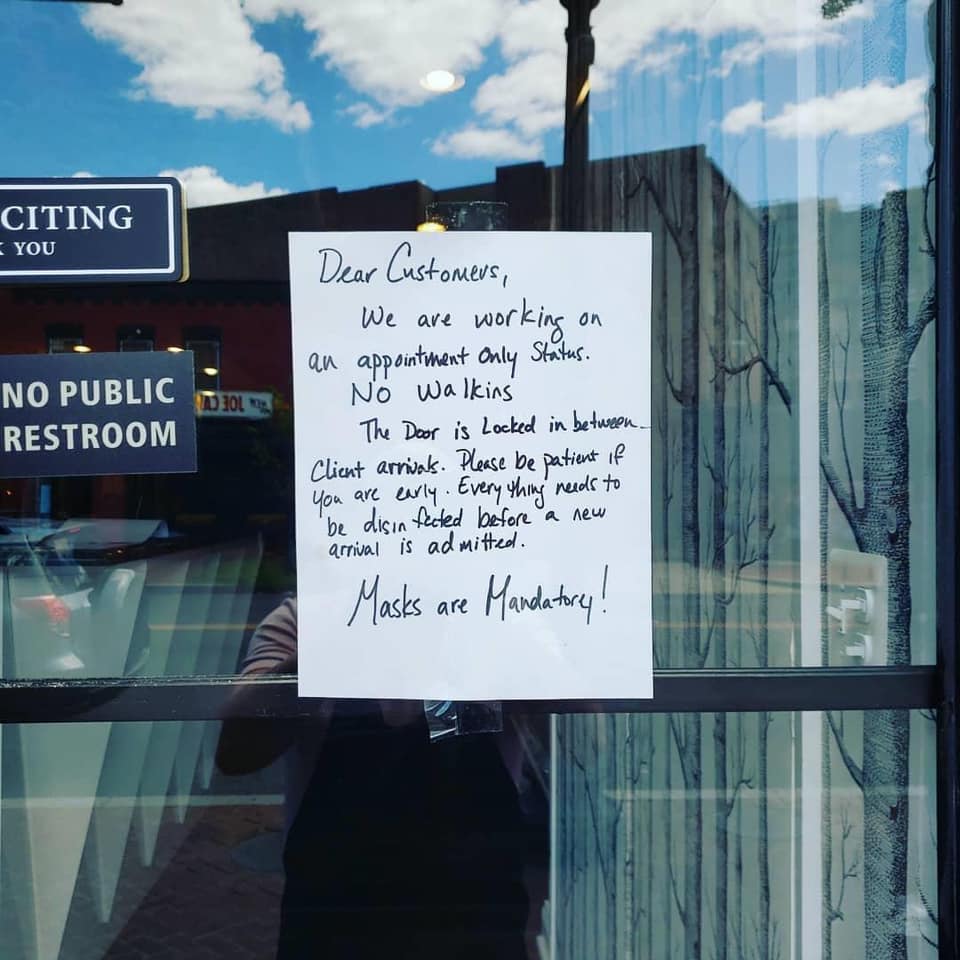 CITING
YOU
NO PUBLIC
RESTROOM
Dear Customers,
We are working on
an appointment Only Status.
No Walkins
The Door is Locked in between
Client arrivals. Please be patient if
you are early. Everything needs to
be disinfected before a new
arrival is admitted.
Masks are Mandatory!